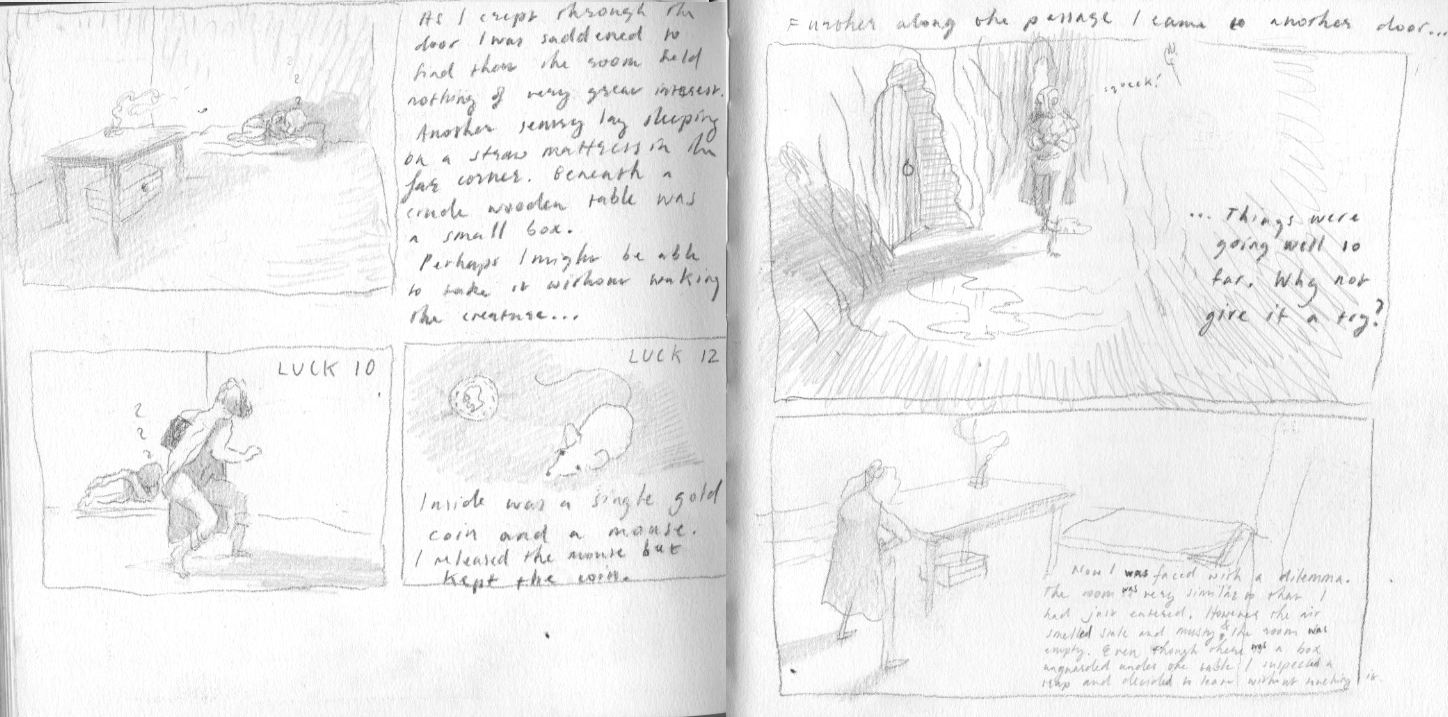 As I crept through the
door I was saddened to
find that the room held
nothing of very great interest.
Another sentry lay sleeping
on a straw mattress in the
far corner. Beneath a
crude wooden table was
a small box.
Perhaps I might be able
to take it without waking
the creature...
LUCK 10
LUCK 12
Inside was a single gold
coin and a mouse.
I released the mouse but
kept the coin.
Further along the passage I came to another door...
squeek!
... Things were
going well so
far. Why not
give it a try?
Now I was faced with a dilemma.
The room was very similar to that I
had just entered. However the air
smelled stale and musty & the room was
empty. Even though there was a box
unguarded under the table I suspected a
trap and decided to leave without touching it.